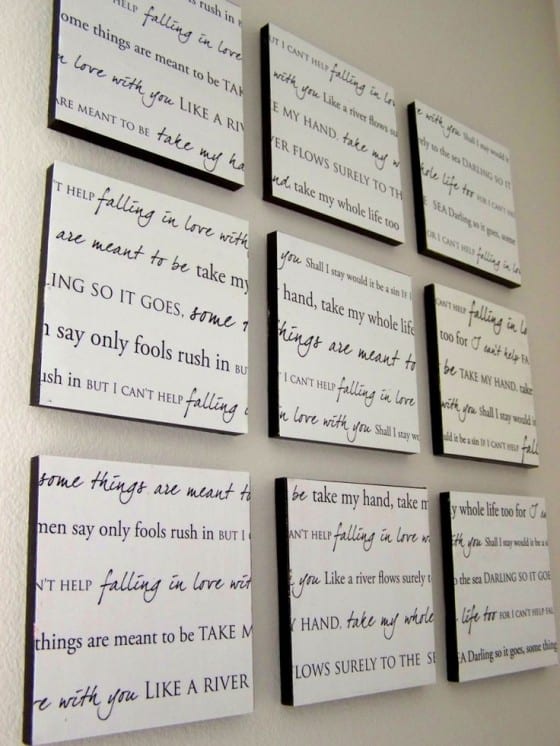 HELP falling in love
rush in B
ome things are meant to be TAK
n love with you LIKE A RIV
ARE MEANT TO BE take my ha
UT I CAN'T HELP falling in lov
with you Like a river flows su
E MY HAND, take my w
ER FLOWS SURELY TO TH
nd, take my whole life too
e with you Shall I stay would it
ely to the sea DARLING SO IT
hole life too FOR I CAN'T
SEA Darling so it goes, some
OR I CAN'T HELP falling in lov
'T HELP falling in love with
are meant to be take my
LING SO IT GOES, some t
n say only fools rush in BUT
ush in BUT I CAN'T HELP falling
you Shall I stay would it be a sin IF I
hand, take my whole life
things are meant to
I CAN'T HELP falling in love
n love with you Shall I stay wo
CAN'T HELP falling in lo
too for I can't help FA
be TAKE MY HAND, take
with you Shall I stay would it
uld it be a sin IF I CAN'T HELP fall
some things are meant to
men say only fools rush in BUT I
N'T HELP falling in love wit
things are meant to be TAKE M
e with you LIKE A RIVER
be take my hand, take m
AN'T HELP falling in love w
you Like a river flows surely t
HAND, take my whole
LOWS SURELY TO THE SE
y whole life too for I
th you Shall I stay would it be a s
o the sea DARLING SO IT GOE
life too FOR I CAN'T HELP FAL
EA Darling so it goes, some thing